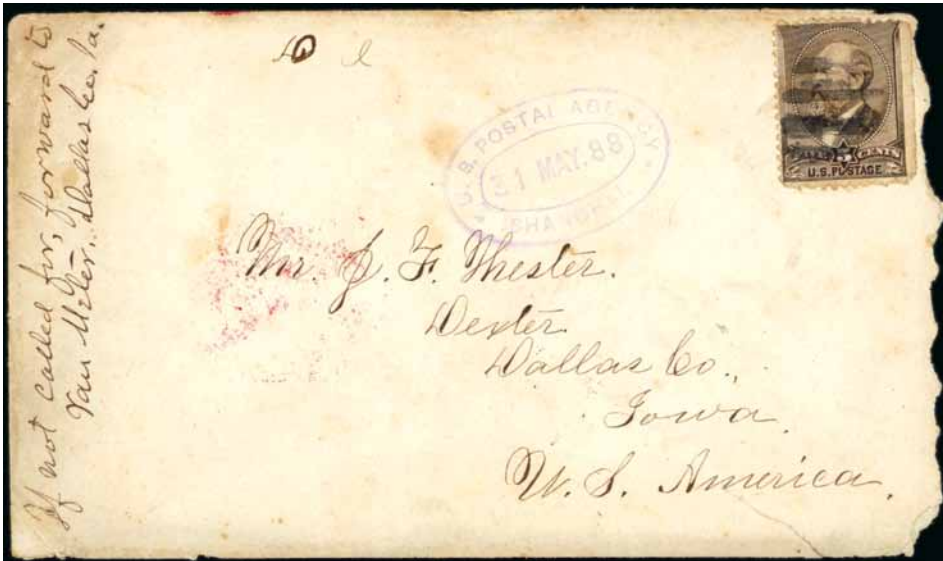 If not called for, forward to
Van Meter, Dallas Co. Ia.
U.S. POSTAL AGENCY
31 MAY. 88
SHANGHAI
CENTS
U.S. POSTAGE
Mr. J. F. Mester.
Dexter
Dallas Co.,
Iowa.
U. S. America.